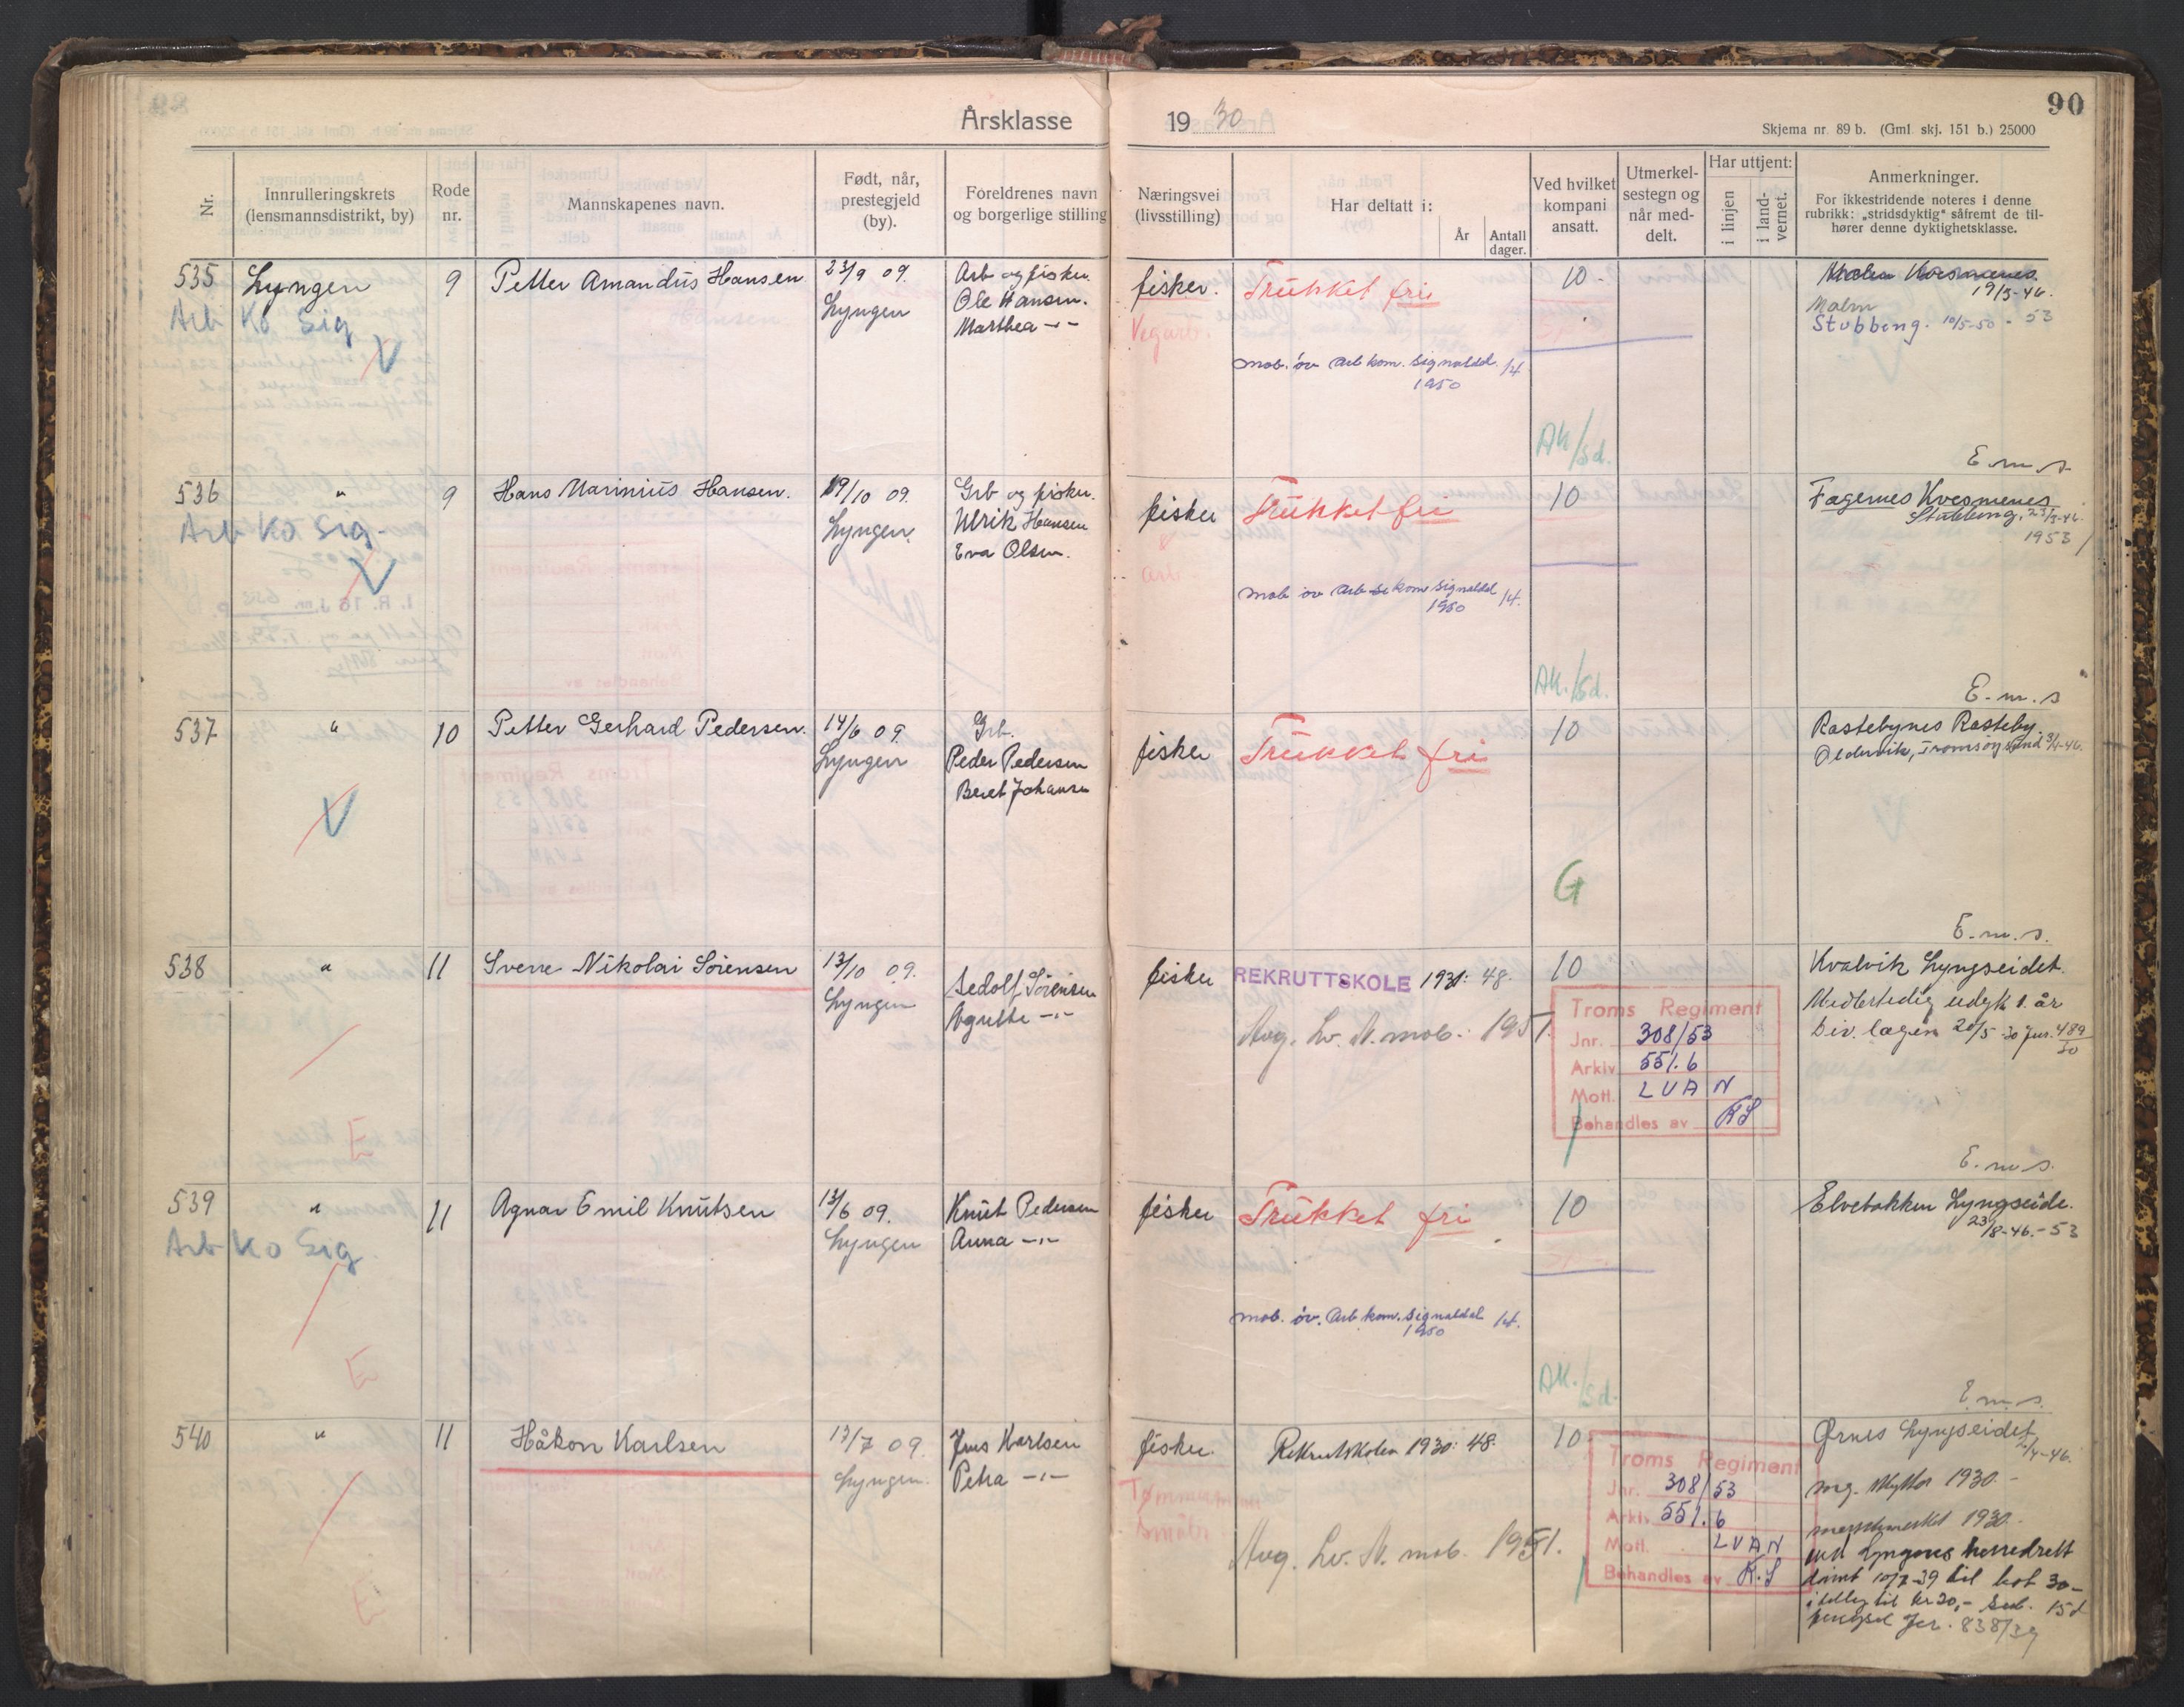 Årsklasse 19 30
90
Skjema nr. 89 b. (Gml. skj. 151 b.) 25000
Nr.
Innrulleringskrets
(lensmannsdistrikt, by)
Rode
nr.
Mannskapenes navn.
Født, når,
prestegjeld
(by).
Foreldrenes navn
og borgerlige stilling
Næringsvei
(livsstilling)
Har deltatt i:
År
Antall
dager.
Ved hvilket
kompani
ansatt.
Utmerkel-
sestegn og
når med-
delt.
Har uttjent:
i linjen
i land-
vernet.
Anmerkninger.
For ikkestridende noteres i denne
rubrikk: „stridsdyktig“ såfremt de til-
hører denne dyktighetsklasse.
535 Lyngen 9 Petter Amandus Hansen 23/9 09.
Lyngen
Arb og fisker.
Ole Hansen.
Marthea -"-
Arb Ko Sig
V
fisker.
Vegarb.
Trukket fri
mob. öv Arb kom. signaldal. 14
1950
10 -
AK/Sd.
19/3-46.
Malm
Stubbeng. 10/5-50 - 53
E.m.s.
536 " 9 Hans Marinius Hansen. 19/10 09.
Lyngen.
Grb og fisker.
Ulrik Hansen
Eva Olsen.
Arb Ko Sig-
V
fisker
&
arb
Trukket fri
mob öv Arb kom signaldal 14.
1950
10
AK./Sd.
Fagernes Kvesmenes
Stubbeng. 23/3-46.
1953
E.m.s
537 " 10 Petter Gerhard Pedersen. 14/6 09.
Lyngen
Grb.
Peder Pedersen
Beret Johansen
V
fisker
Trukket fri
10
G
Rastebynes Rasteby.
Oldervik, Tromsøysund 3/4-46.
E.m.s.
538 " 11 Sverre Nikolai Sörensen 13/10 09.
Lyngen
Sedolf Sörensen
Agnethe -"-
E
fisker
REKRUTTSKOLE 1931: 48.
Avg. Lv. A. mob. 1951.
10
Troms Regiment
Jnr. 308/53
Arkiv 551.6
Mott. LVAN
Behandles av KS
Kvalvik Lyngseidet.
Midlertidig udyk 1. år
Div. lægen 20/5-30 Jnr. 489/30
E.m.s.
539 " 11 Agnar Emil Knutsen 13/6 09.
Lyngen
Knut Pedersen
Anna -"-
Arb Ko Sig.
E
fisker
Trukket fri
mob. öv. Arb kom. signaldal 14.
1950
10
AK./Sd.
Elvebakken Lyngseide.
23/8-46.-53
E.m.s.
540 " 11 Håkon Karlsen 17/7 09.
Lyngen.
Jens Karlsen
Petra -"-
E
fisker.
Tømmermann
småbr
Rekrutskolen 1930: 48.
Avg. Lv. A. mob. 1951.
10
Troms Regiment
Jnr. 308/53
Arkiv 551.6
Mott. LVAN
Behandles av K.S
Ørnes Lyngseidet
2/4-46.
mg. skytter 1930.-
marsjmerket 1930.-
ved Lyngens herredrett
dömt 10/7-39 til bot 30-
i tillegg til kr 20,- sub. 15 d
fengsel Jnr. 838/39